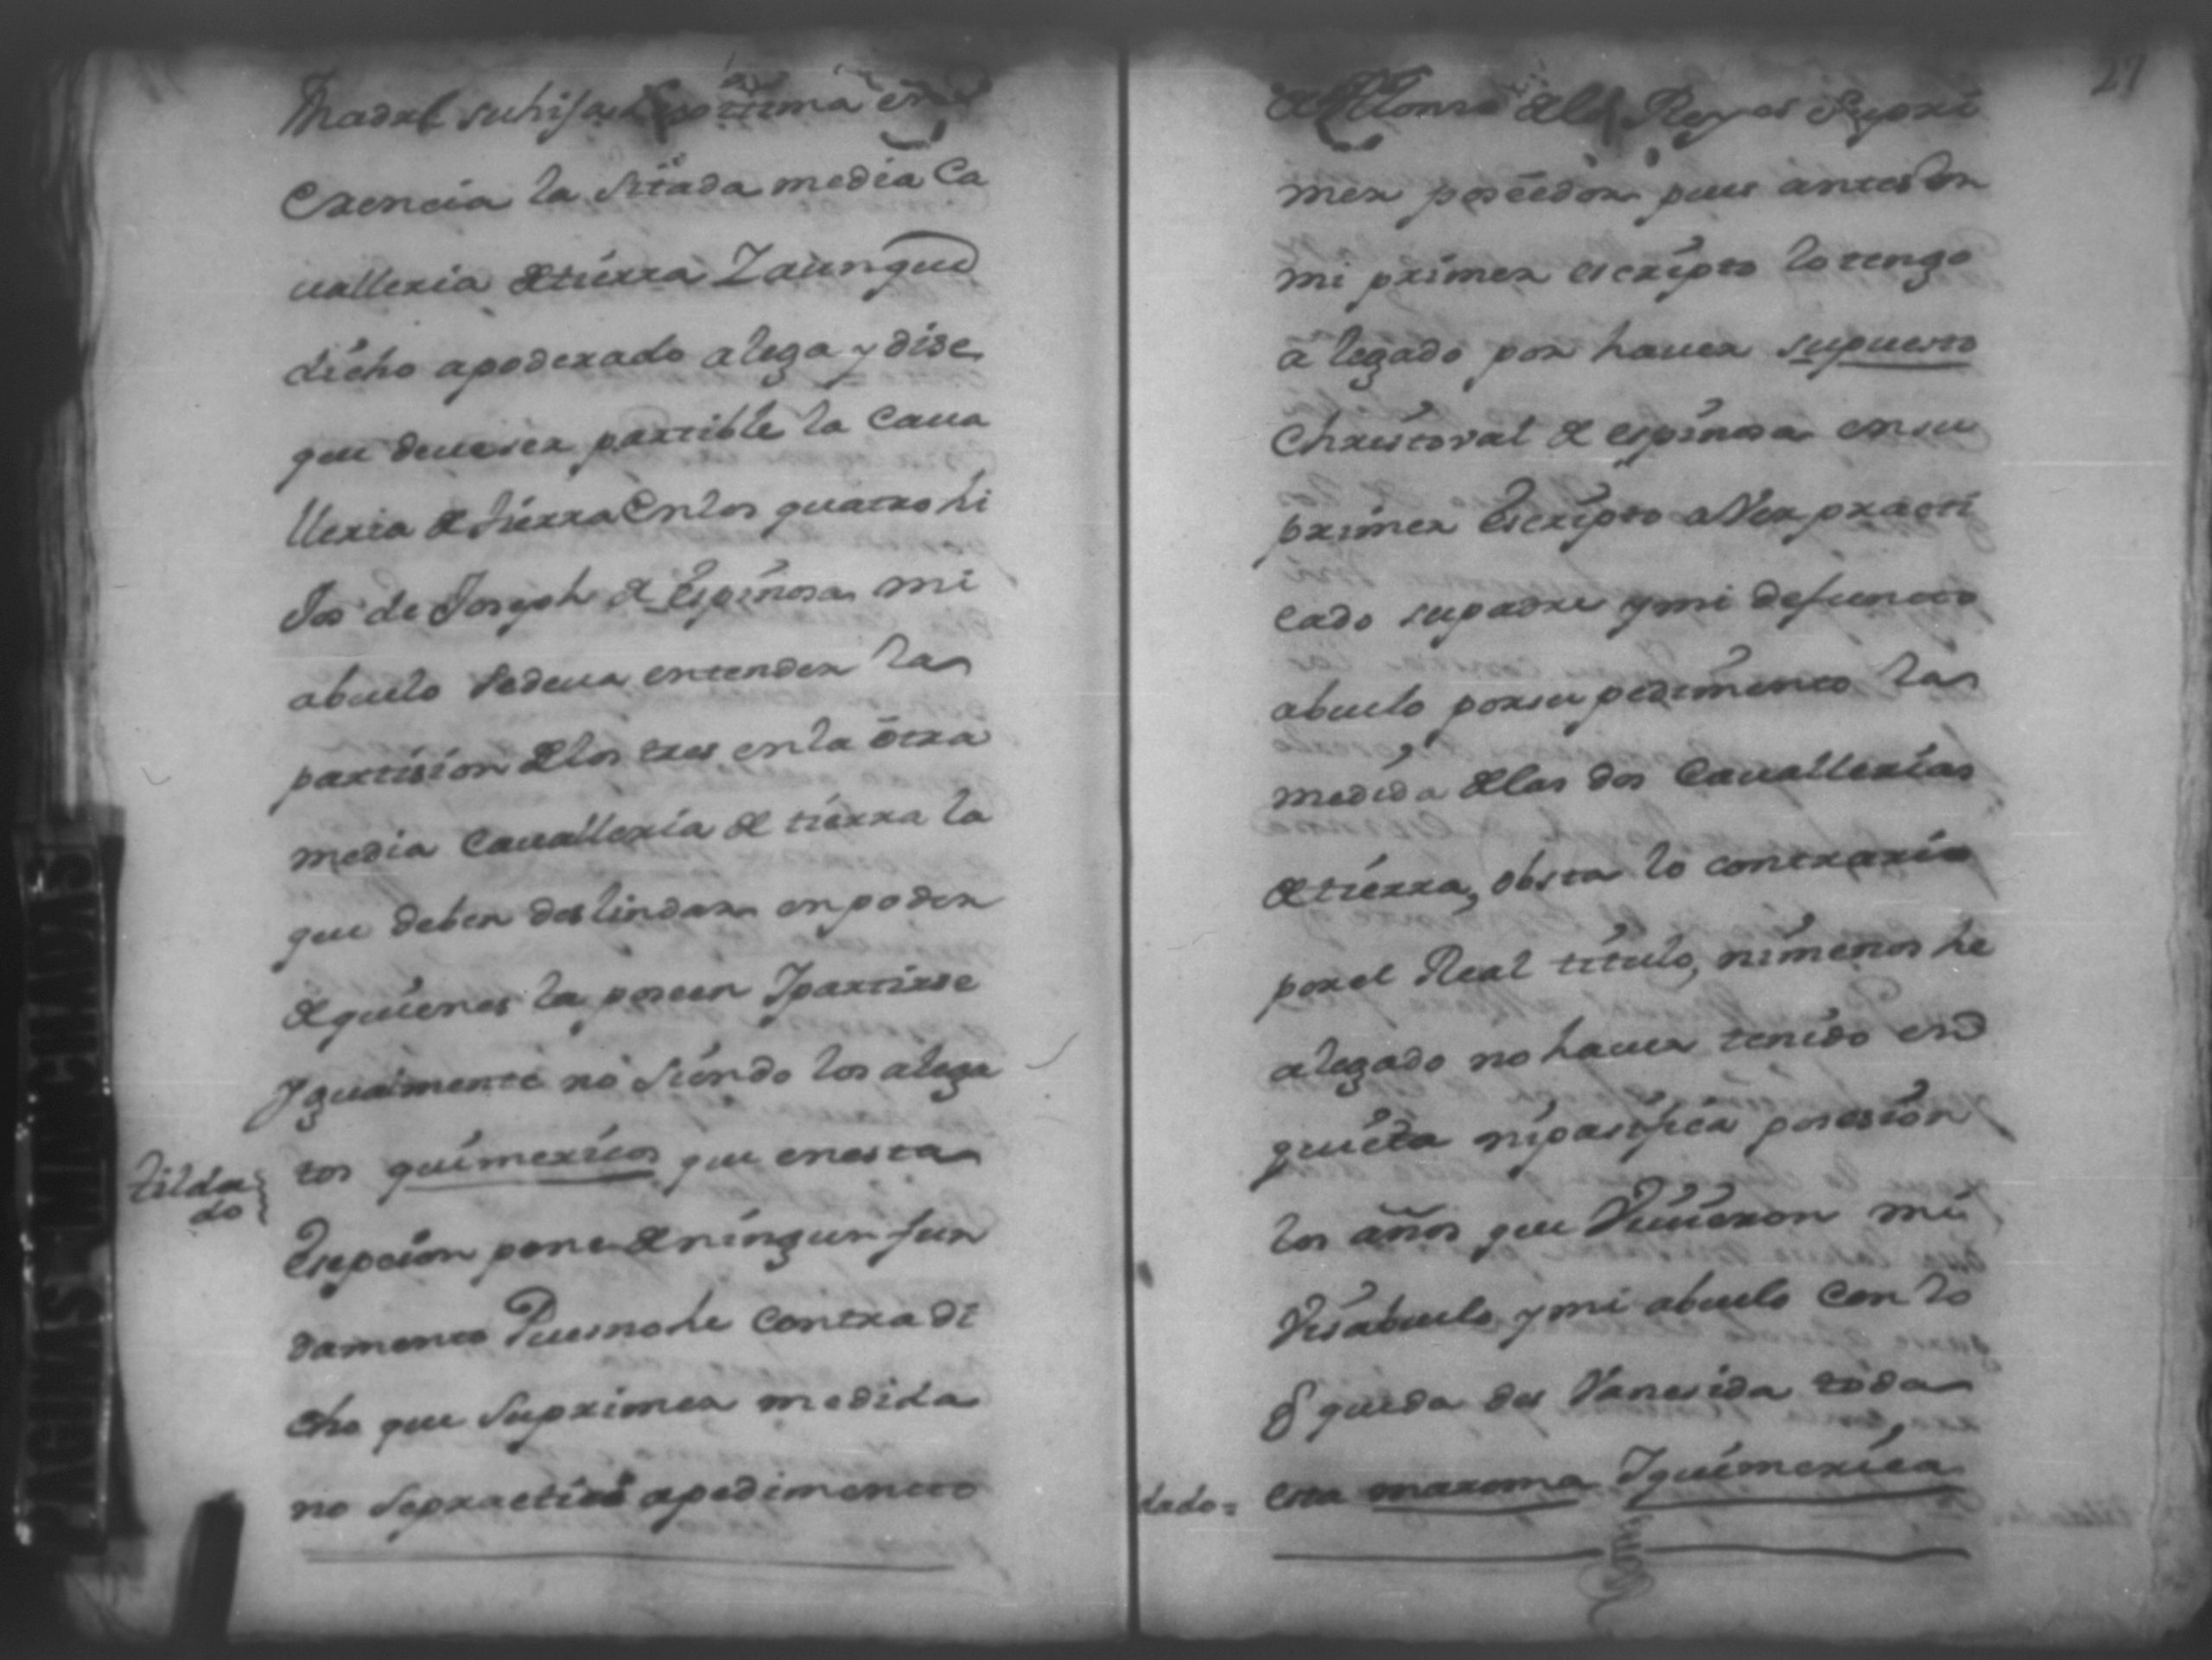 Madre su hija Lexitima en
Erencia la Sitada media Ca
ualleria de tierra Y aunque
dicho apoderado alega y dise
que deue ser partible la Caua
lleria de tierra En los quatro hi
Jos de Joseph de Espinosa mi
abuelo Se deua entender la
partision de los tres en la otra
media Caualleria de tierra la
que deben deslindar en poder
de quienes la poseen Y partirse
Ygualmente no Siendo los alega
tos quimericos que en esta
tilda
do
Esepcion pone de ningun fun
damento Pues no he Contra di
cho que Su primera medida
no Se practicó a pedimento
27
de Alonso de los Reyes Su pri
mer poseedor pues antes en
mi primer escripto lo tengo
alegado por hauer supuesto
Christoval de espinosa en su
primer Escripto aVer practi
cado su padre y mi defuncto
abuelo por su pedimento la
medida de las dos Cauallerias
de tierra, obsta lo contrario
por el Real titulo, ni menos he
alegado no hauer tenido en
quieta ni pasifica posesion
los años que Viuieron mi
Visabuelo y mi abuelo Con lo
q queda des Vanesida toda
dado=
esta maroma Y quimerica